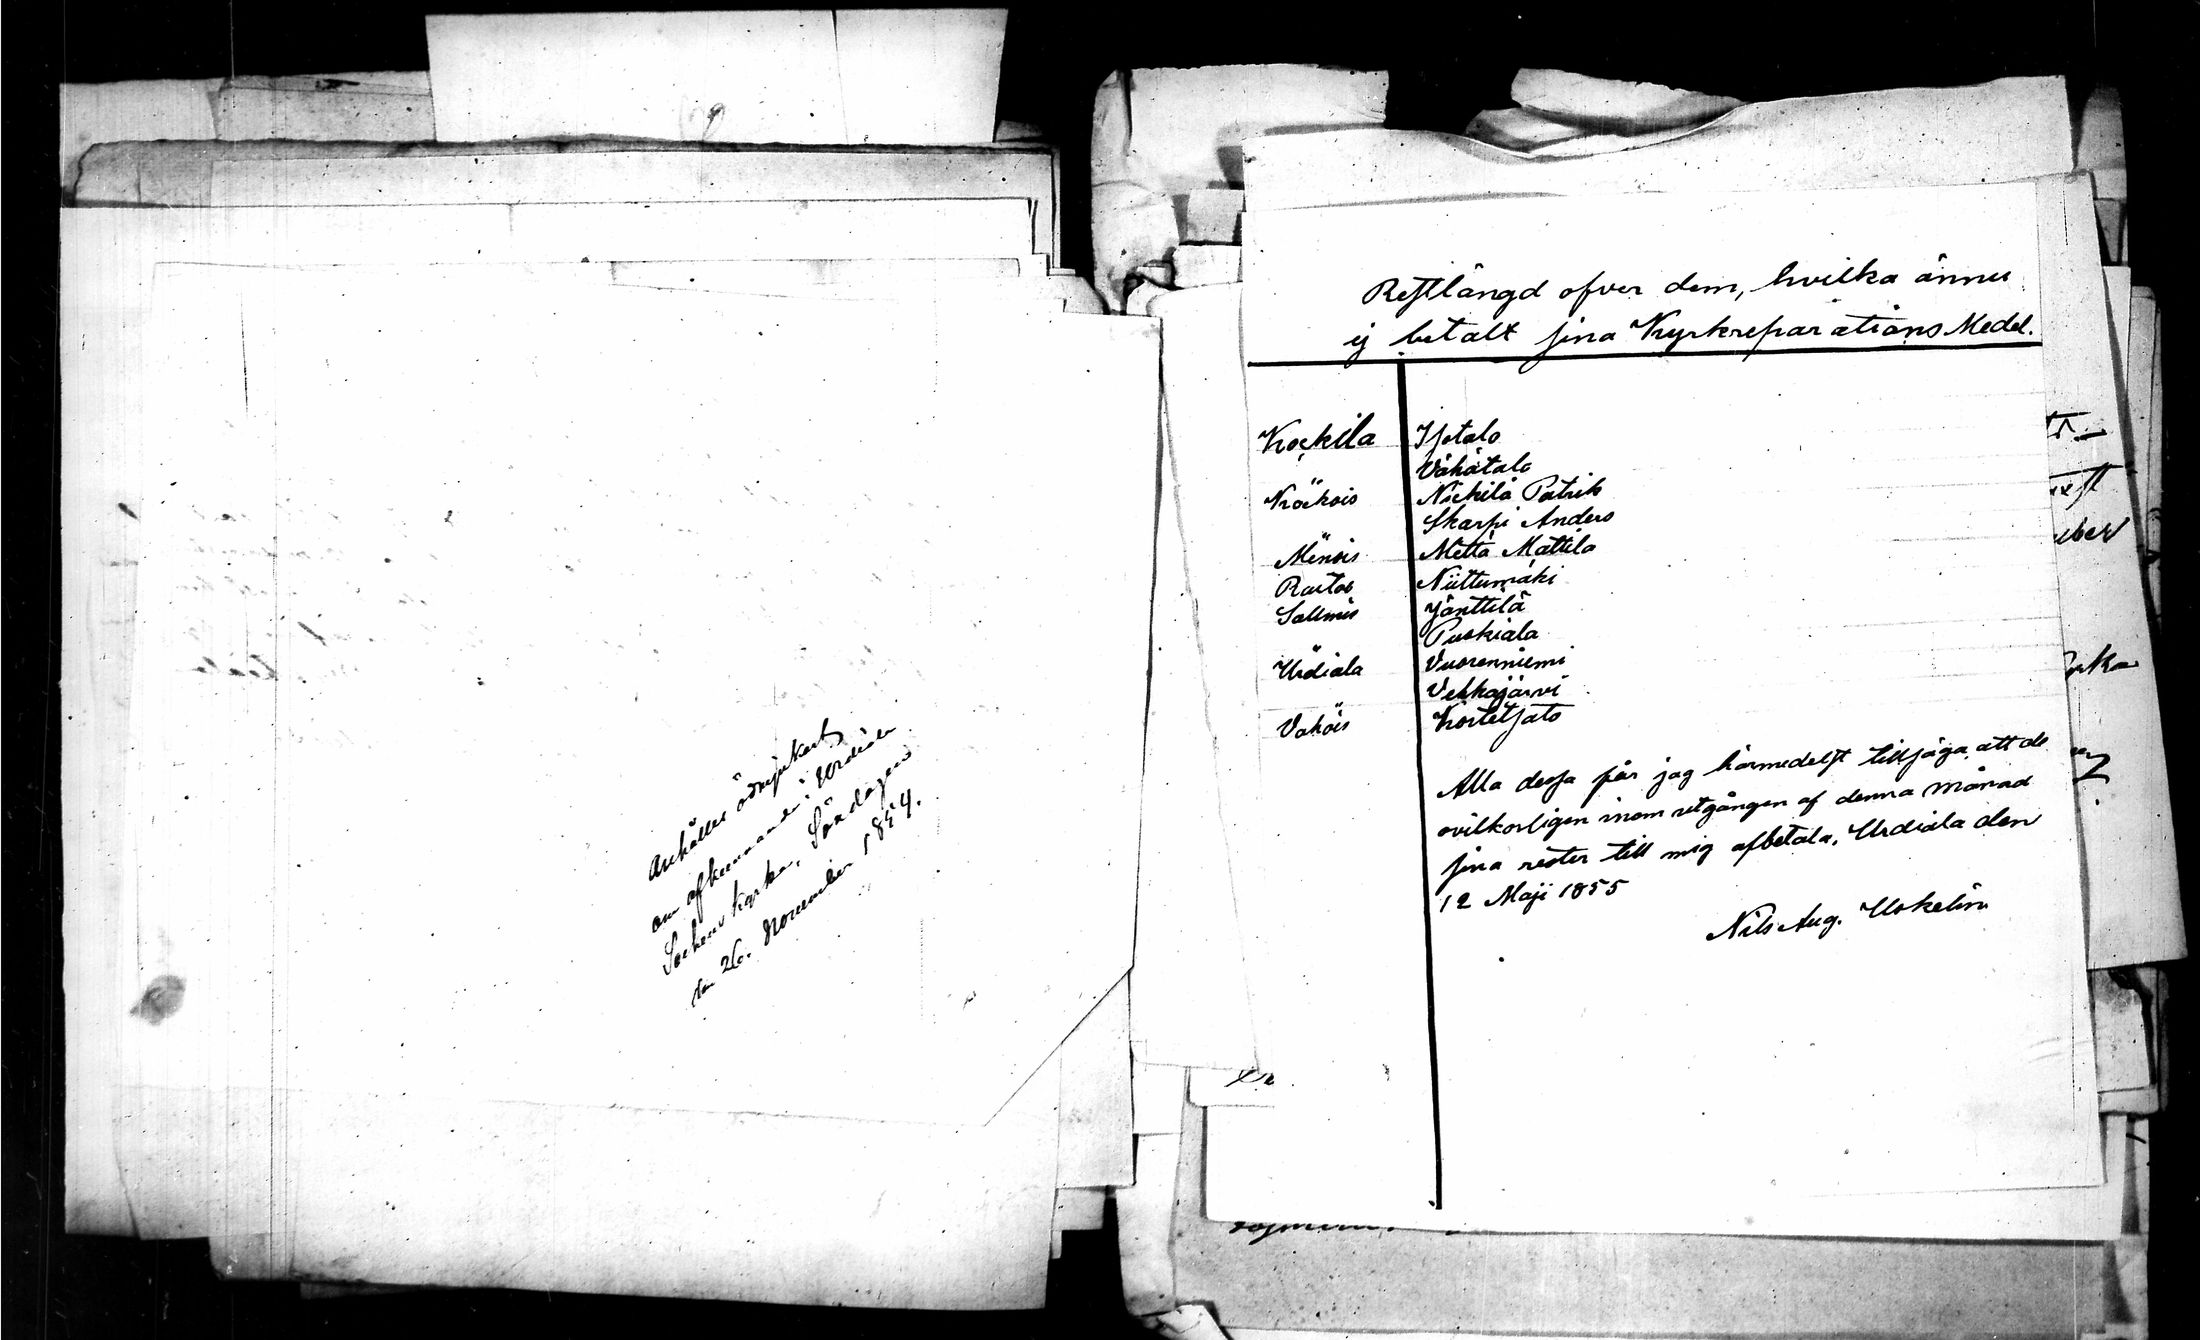 Anhålles ödmjukast
om afkunnande i Urdiala
Sockens kyrka, Söndagen
den 26. November 1854.
Restlängd öfver dem, hvilka ännu
ej betalt sina Kyrkreparations Medel.
Kockila Isotalo
Vähätalo
Kräkois Nickilä Patrik
Skarpi Anders
Menois Mettä Mattila
Rautos Niittumäki
Salmis Jänttilä
Puskiala
Urdiala Vuorenniemi
Vehkajärvi
Vahois Kortetsato
Alla dessa får jag härmedelst tillsäga, att de
ovilkorligen inom utgången af denna månad
sina rester till mig afbetala, Urdiala den
12 Maji 1855
Nils Aug. Uskelin